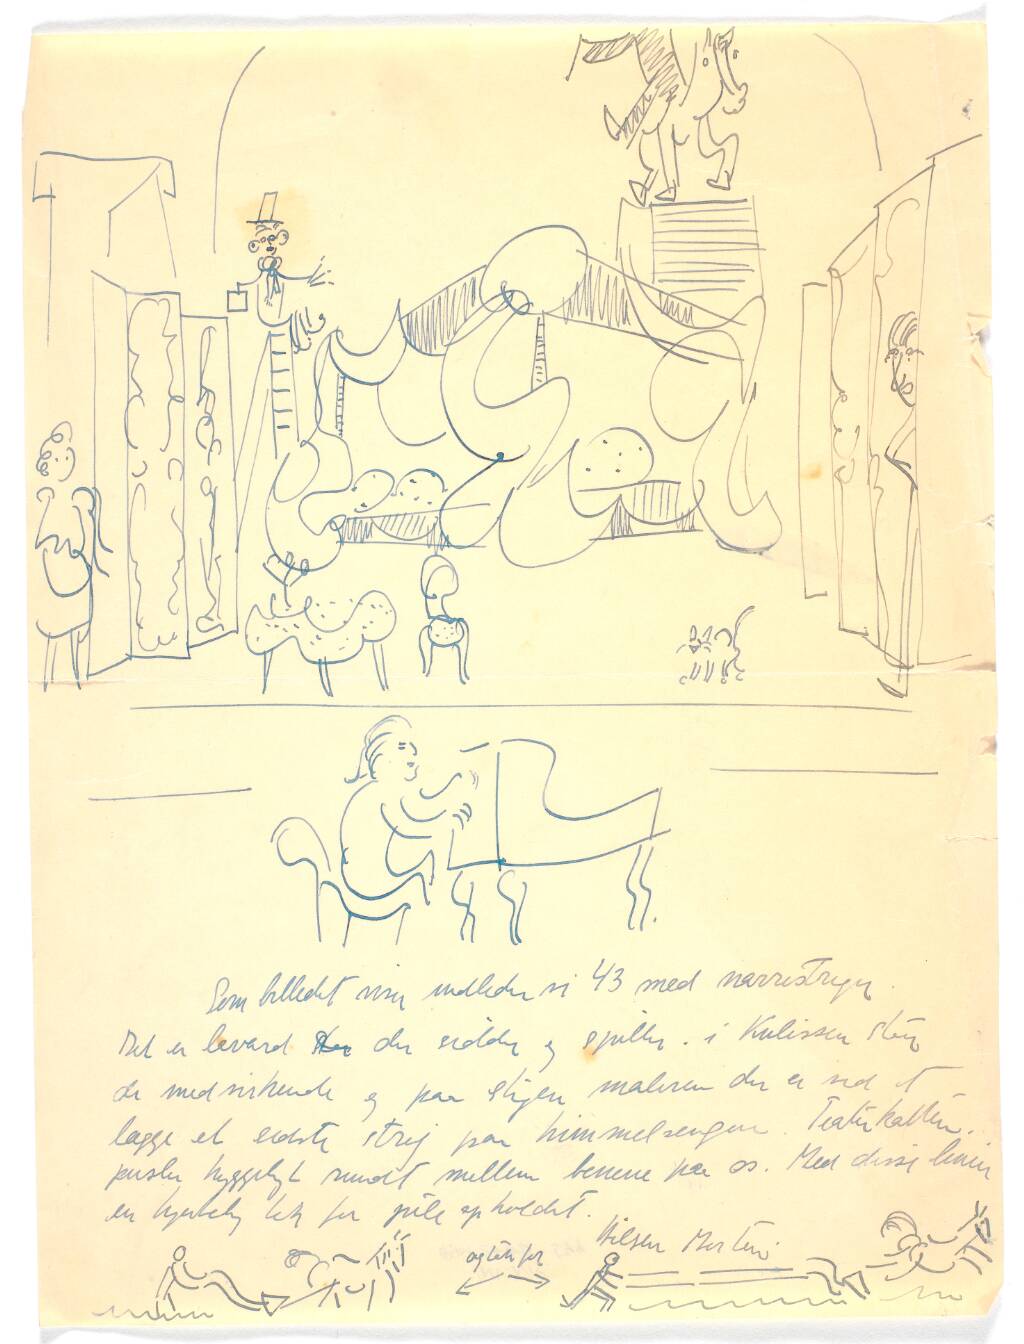 Som billedet viser indleder vi 43 med narrestreger.
Det er levard der sidder og spiller. i Kulissen står
de medvirkende og paa stigen maleren der er ved at
lægge et sidste strøg paa himmelsengen. Teaterkatten
pusler hyggeligt rundt mellem benene paa os. Med disse linier
en hjertelig tak for juleopholdet.
Hilsen Morten
og tak for